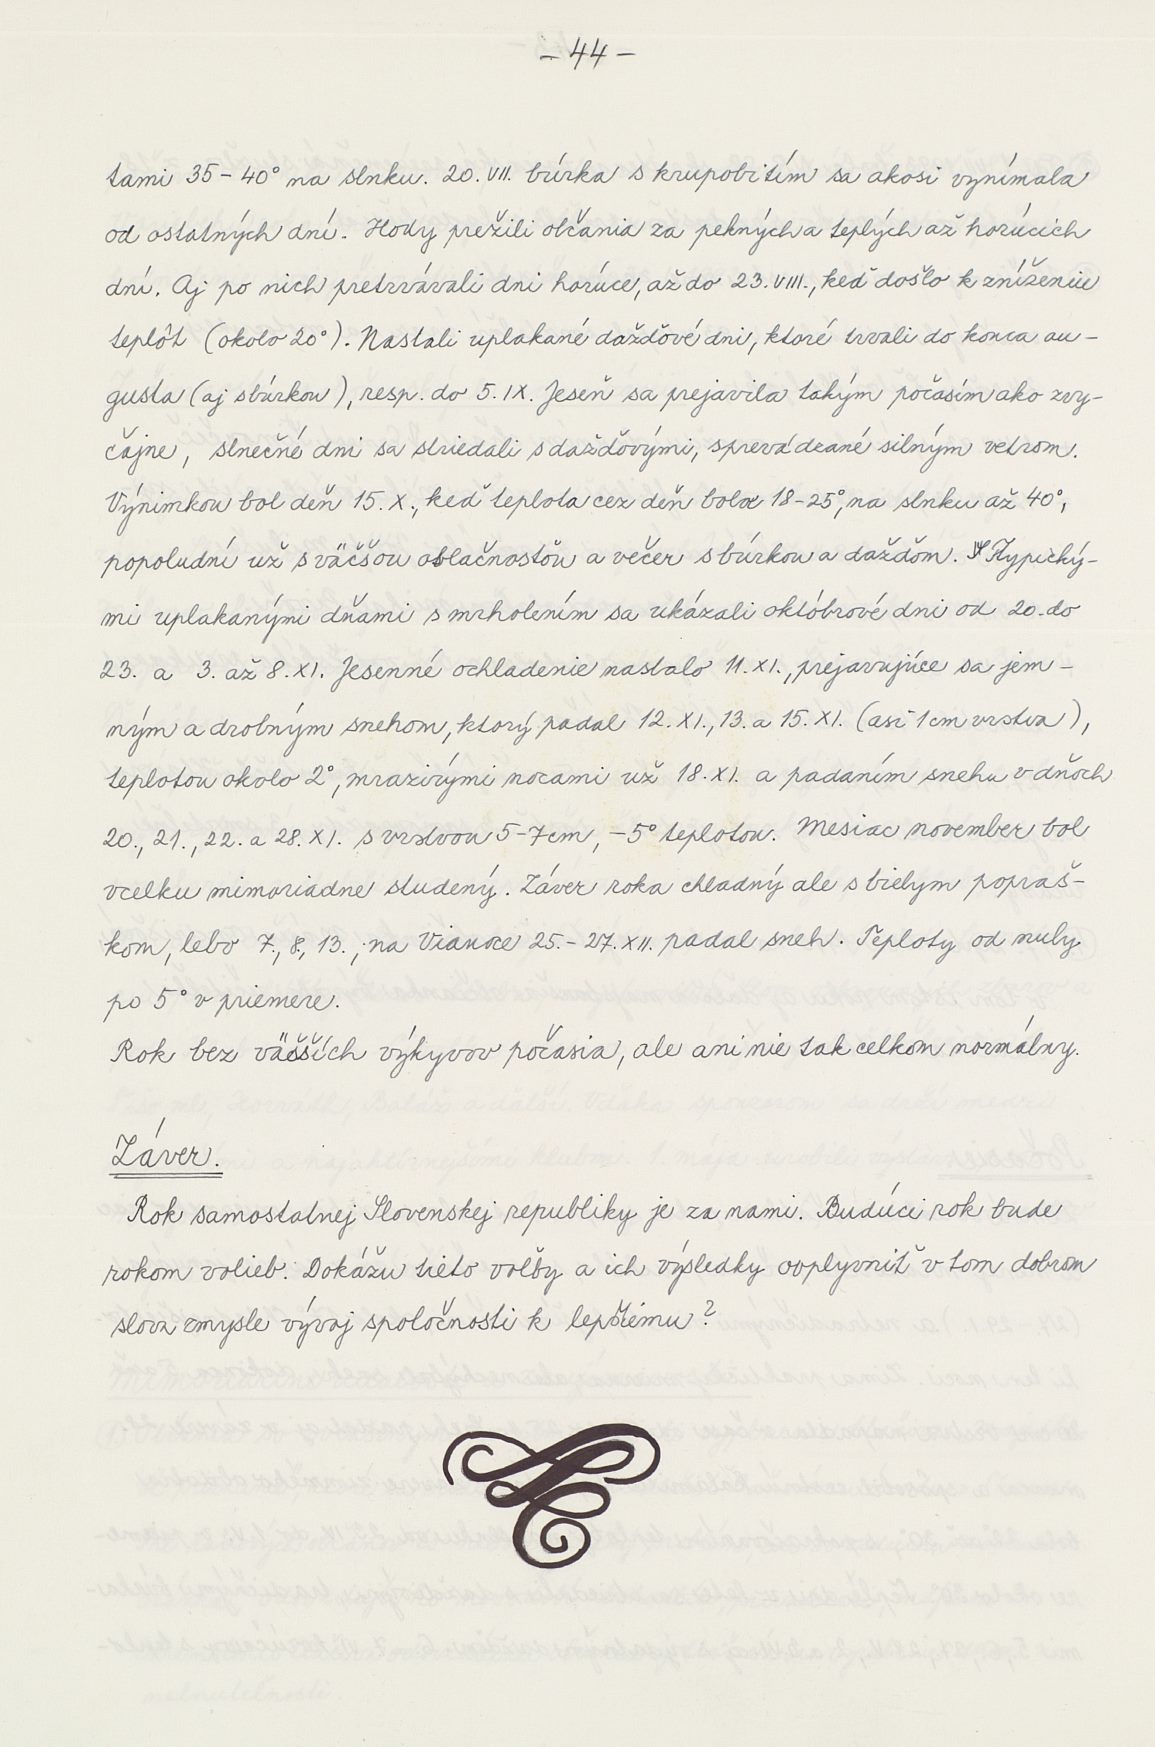 - 44 -
tami 35 - 40° na slnku. 20. VII. búrka s krupobitím sa akosi vynímala
od ostatných dní. Hody prežili občania za pekných a teplých až horúcich
dní. Aj po nich pretrvávali dni horúce, až do 23. VIII., keď došlo k zníženiu
teplôt (okolo 20°). Nastali uplakané dažďové dni, ktoré trvali do konca au-
gusta (aj s búrkou), resp. do 5. IX. Jeseň sa prejavila takým počasím ako zvy-
čajne, slnečné dni sa striedali s dažďovými, sprevádzané silným vetrom.
Výnimkou bol deň 15. X., keď teplota cez deň bola 18-25°, na slnku až 40°,
popoludní už s väčšou oblačnosťou a večer s búrkou a dažďom. Typický-
mi uplakanými dňami s mrholením sa ukázali októbrové dni od 20. do
23. a 3. až 8. XI. Jesenné ochladenie nastalo 11. XI., prejavujúce sa jem-
ným a drobným snehom, ktorý padal 12. XI., 13. a 15. XI. (asi 1 cm vrstva),
teplotou okolo 2°, mrazivými nocami už 18. XI. a padaním snehu v dňoch
20., 21., 22. a 28. XI. s vrstvou 5-7cm, -5° teplotou. Mesiac november bol
vcelku mimoriadne studený. Záver roka chladný ale s bielym popraš-
kom, lebo 7., 8., 13., na Vianoce 25. - 27. XII. padal sneh. Teploty od nuly
po 5° v priemere.
Rok bez väčších výkyvov počasia, ale ani nie tak celkom normálny.
Záver.
Rok samostatnej Slovenskej republiky je za nami. Budúci rok bude
rokom volieb. Dokážu tieto voľby a ich výsledky ovplyvniť v tom dobrom
slova zmysle vývoj spoločnosti k lepšiemu?